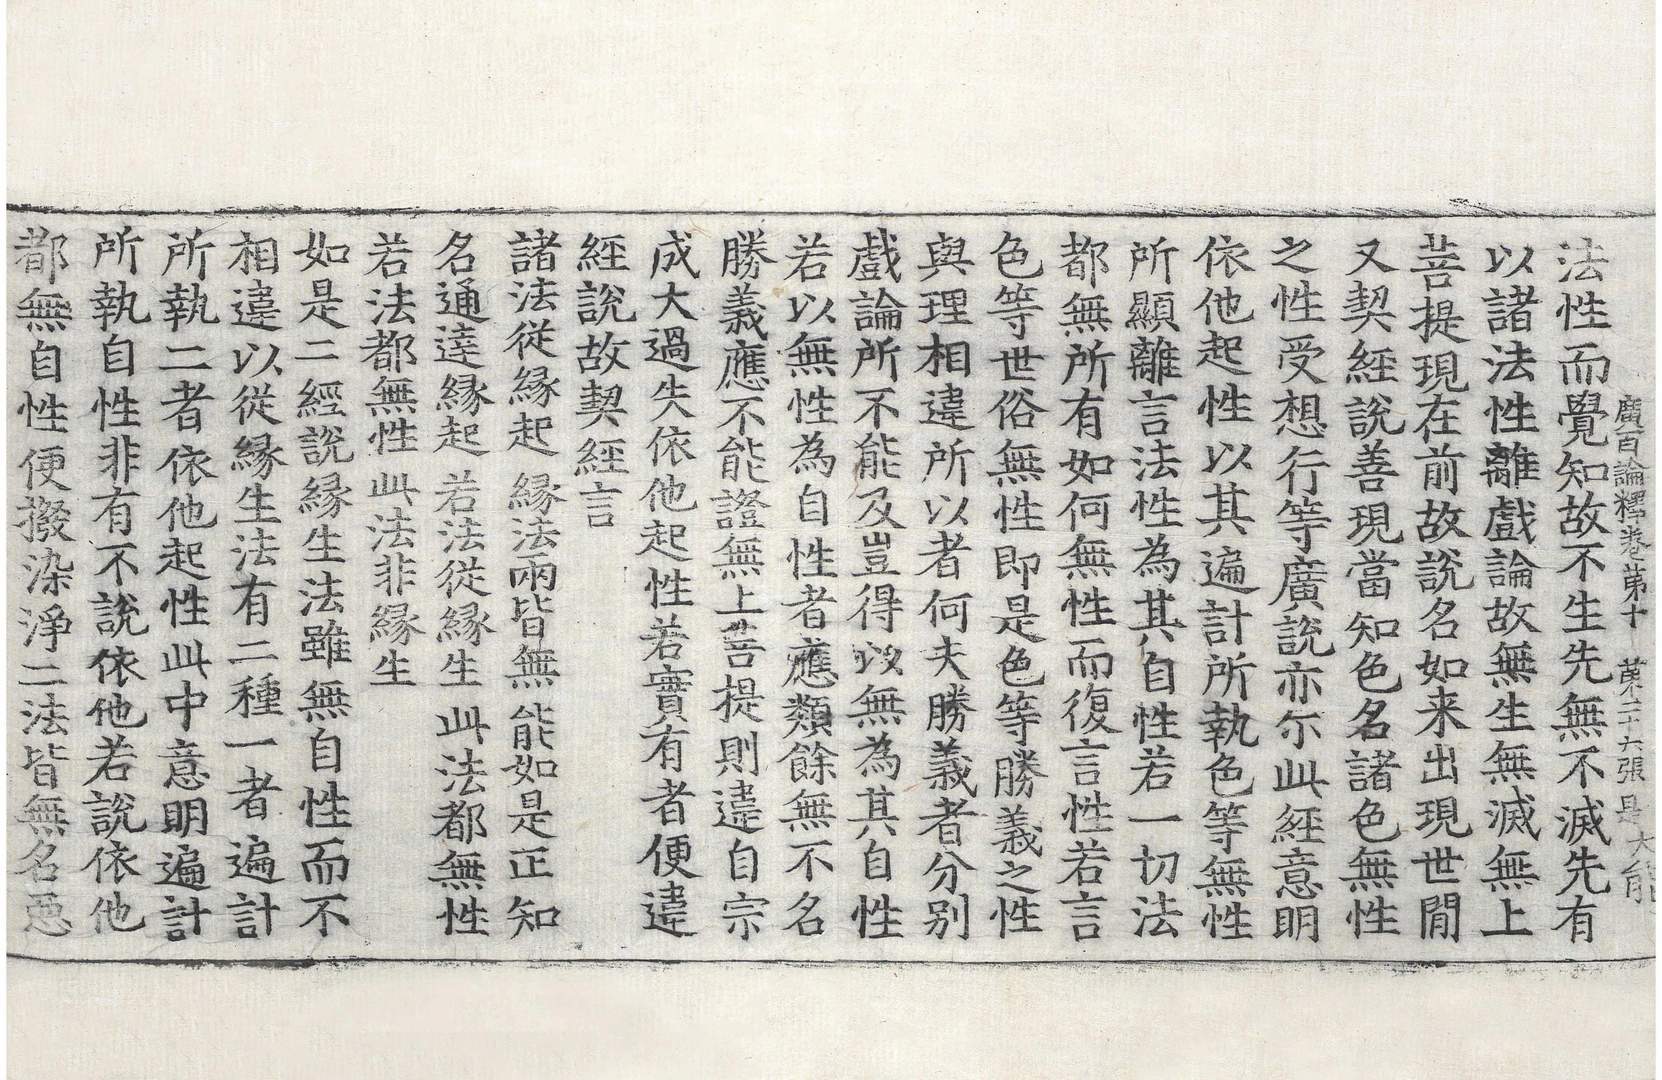 廣百論釋卷苐十 苐二十六張 是 大能
法性而覺知故不生先無不滅先有
以諸法性離戲論故無生無滅無上
菩提現在前故說名如来出現世間
又契經說善現當知色名諸色無性
之性受想行等廣說亦尓此經意明
依他起性以其遍計所執色等無性
所顯離言法性為其自性若一切法
都無所有如何無性而復言性若言
色等世俗無性即是色等勝義之性
與理相違所以者何夫勝義者分别
戲論所不能及豈得以無為其自性
若以無性為自性者應類餘無不名
勝義應不能證無上菩提則違自宗
成大過失依他起性若實有者便違
經說故契經言
諸法從緣起 緣法兩皆無 能如是正知
名通達緣起 若法從緣生 此法都無性
若法都無性 此法非緣生
如是二經說緣生法雖無自性而不
相違以從緣生法有二種一者遍計
所執二者依他起性此中意明遍計
所執自性非有不說依他若說依他
都無自性便撥染淨二法皆無名惡